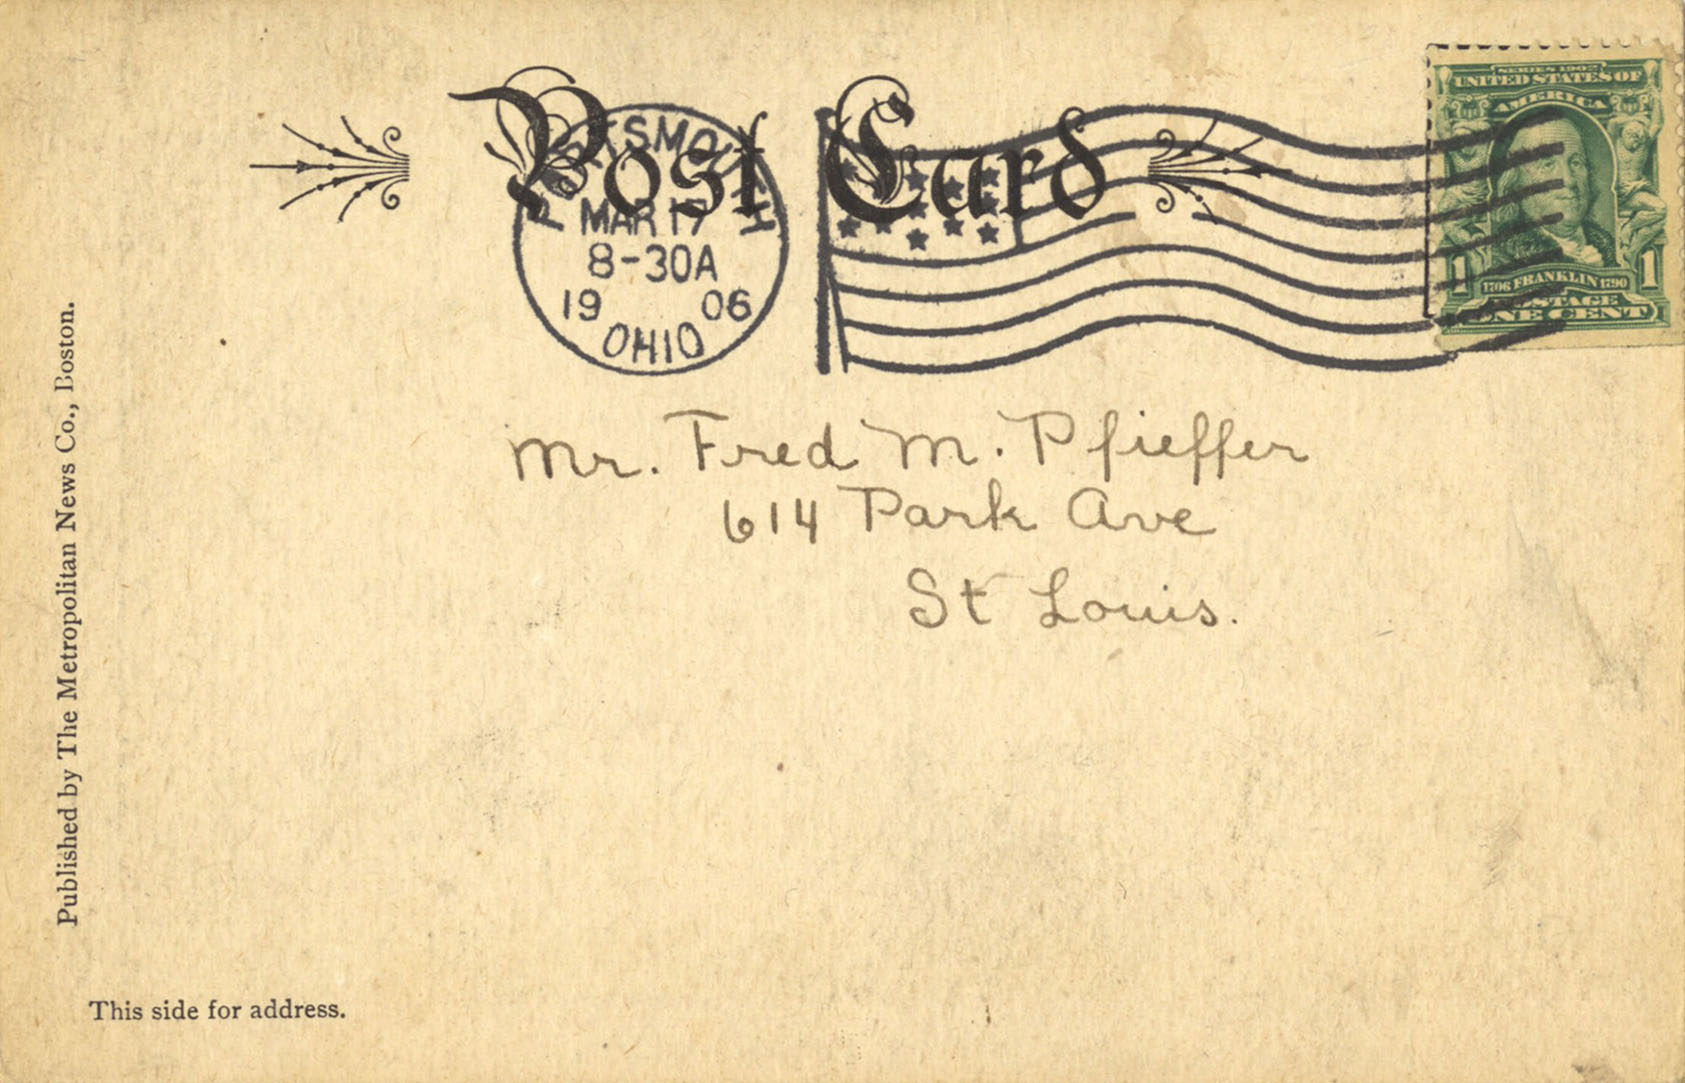 Post Card
PORTSMOUTH
MAR 17
8-30A
19 06
OHIO
SERIES 1902
UNITED STATES OF
AMERICA
1 1706 FRANKLIN 1790 1
POSTAGE
ONE CENT
Mr. Fred M. Pfieffer
614 Park Ave
St Louis.
Published by The Metropolitan News Co., Boston.
This side for address.